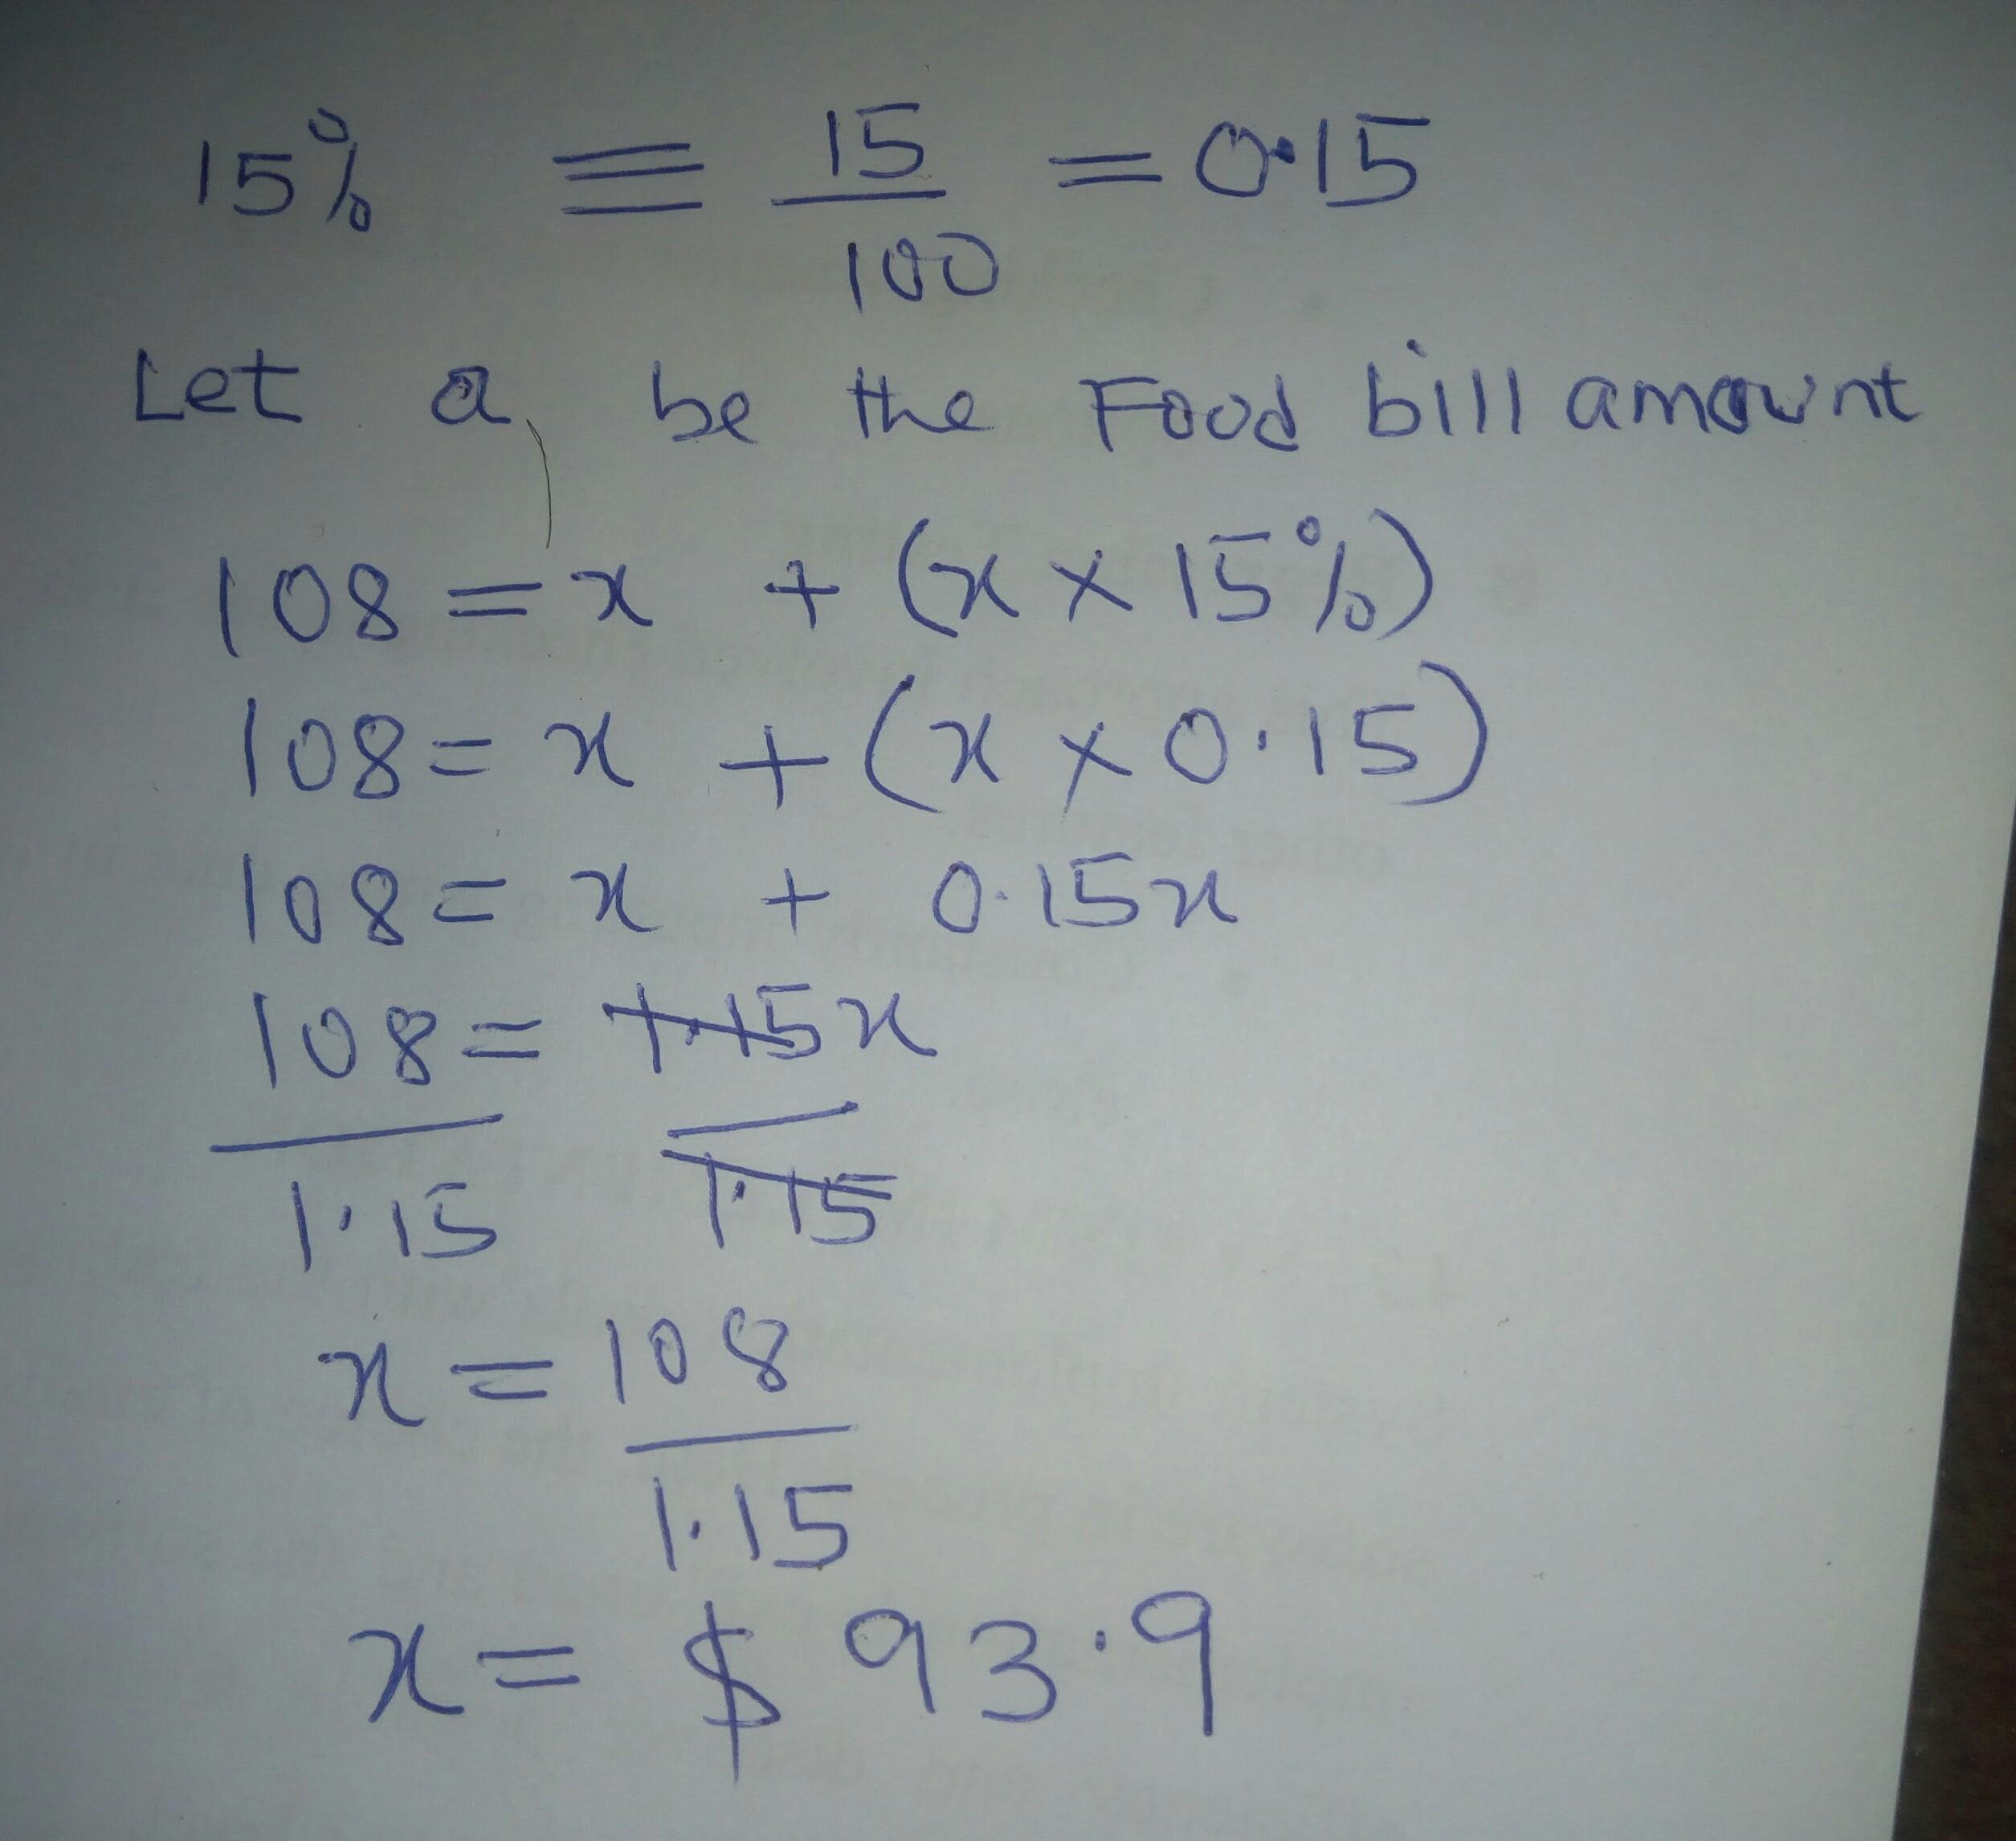 15% ≡ 15/100 = 0.15
Let a, be the Food bill amount
108 = x + (x × 15%)
108 = x + (x × 0.15)
108 = x + 0.15x
108/1.15 = 1.15x/1.15
x = 108/1.15
x = $ 93.9